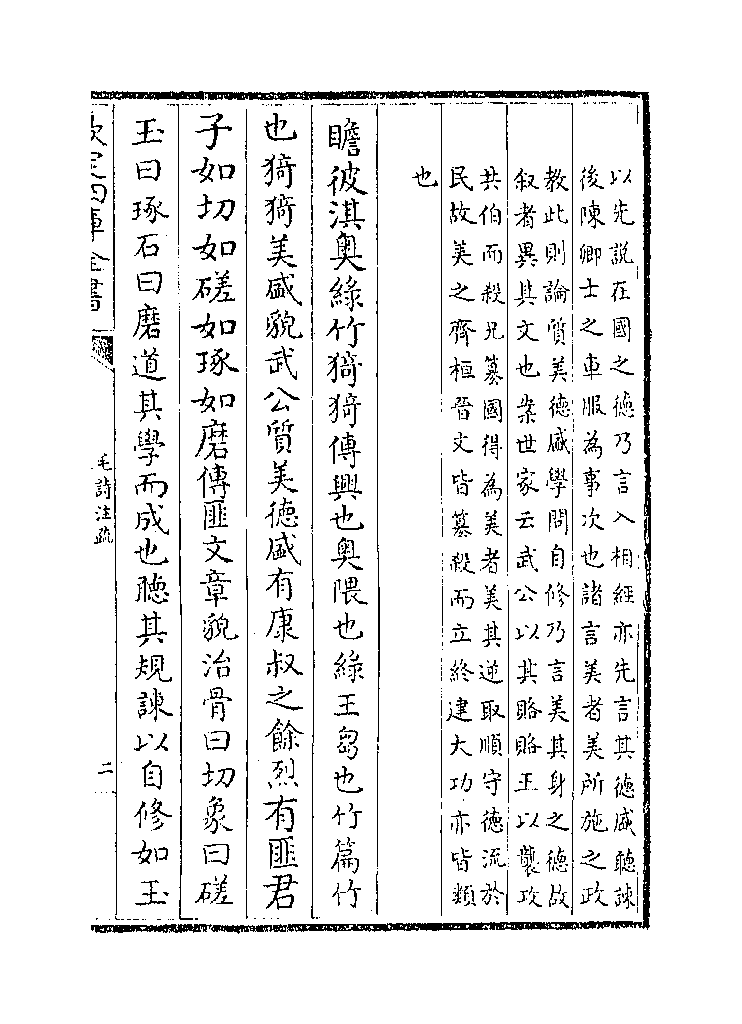 以先說在國之德乃言入相經亦先言其德盛聽諫
後陳卿士之車服為事次也諸言美者美所施之政
教此則論質美德盛學問自修乃言美其身之德故
叙者異其文也案世家云武公以其賂賂王以襲攻
共伯而殺兄篡國得為美者美其逆取順守德流於
民故美之齊桓晉文皆篡殺而立終建大功亦皆類
也
瞻彼淇奥綠竹猗猗傳興也奥隈也綠王芻也竹篇竹
也猗猗美盛貌武公質美德盛有康叔之餘烈有匪君
子如切如磋如琢如磨傳匪文章貌治骨曰切象曰磋
玉曰琢石曰磨道其學而成也聽其規諫以自修如玉
欽定四庫全書
毛詩注疏
二